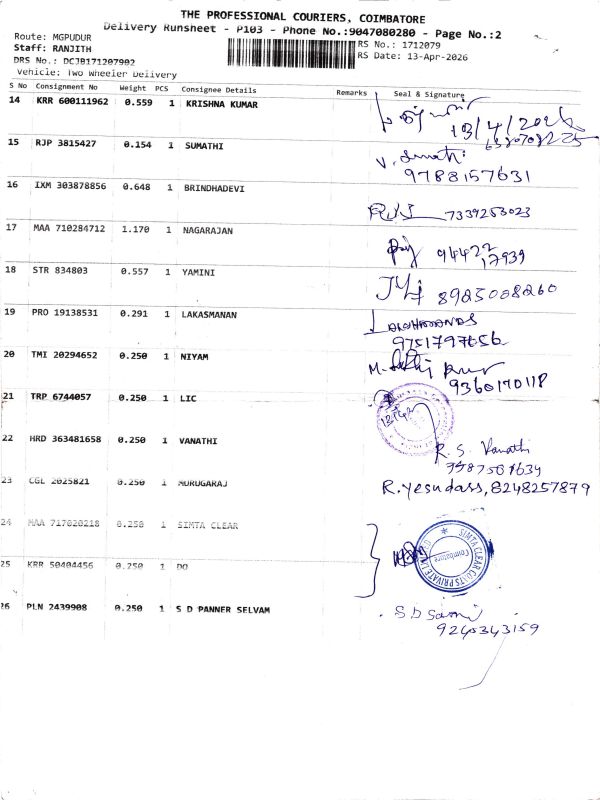 THE PROFESSIONAL COURIERS, COIMBATORE
Delivery Runsheet - P103 - Phone No.:9047080280 - Page No.:2
Route: MGPUDUR
RS No.: 1712079
Staff: RANJITH
RS Date: 13-Apr-2026
DRS No.: DCJB171207902
Vehicle: Two Wheeler Delivery
S No Consignment No Weight PCS Consignee Details Remarks Seal & Signature
14 KRR 600111962 0.559 1 KRISHNA KUMAR
13/4/2026
15 RJP 3815427 0.154 1 SUMATHI
9788157631
16 IXM 303878856 0.648 1 BRINDHADEVI
7339253023
17 MAA 710284712 1.170 1 NAGARAJAN
94422
17939
18 STR 834803 0.557 1 YAMINI
8925008260
19 PRO 19138531 0.291 1 LAKASMANAN
9751797656
20 TMI 20294652 0.250 1 NIYAM
9360170118
21 TRP 6744057 0.250 1 LIC
22 HRD 363481658 0.250 1 VANATHI
R. S. Vanathi
23 CGL 2025821 0.250 1 MURUGARAJ
R.Yesudass, 8248257879
24 MAA 717020218 0.250 1 SIMTA CLEAR
SIMTA CLEAR COATS PRIVATE LIMITED
Coimbatore
25 KRR 50404456 0.250 1 DO
26 PLN 2439908 0.250 1 S D PANNER SELVAM
S D Sami
9245343159